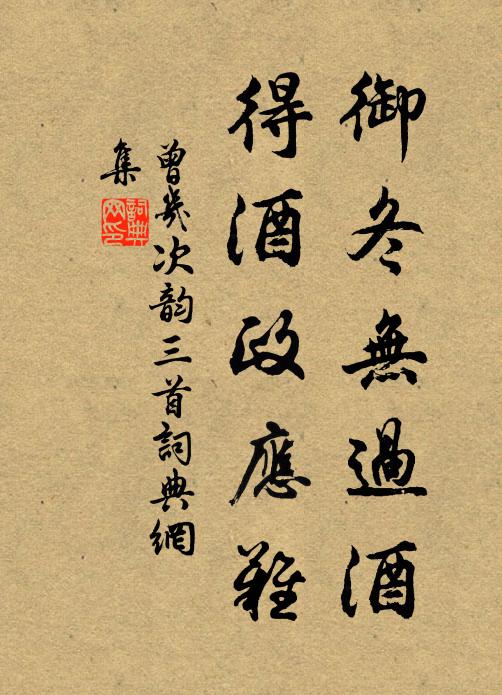 御冬無過酒
得酒政應難
曾幾次韵三首詞典網
集
詞典網印